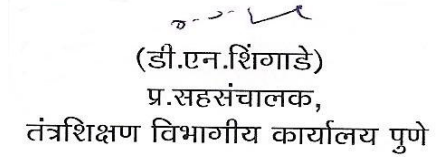 (डी.एन.शिंगाडे)
प्र.सहसंचालक,
तंत्रशिक्षण विभागीय कार्यालय पुणे